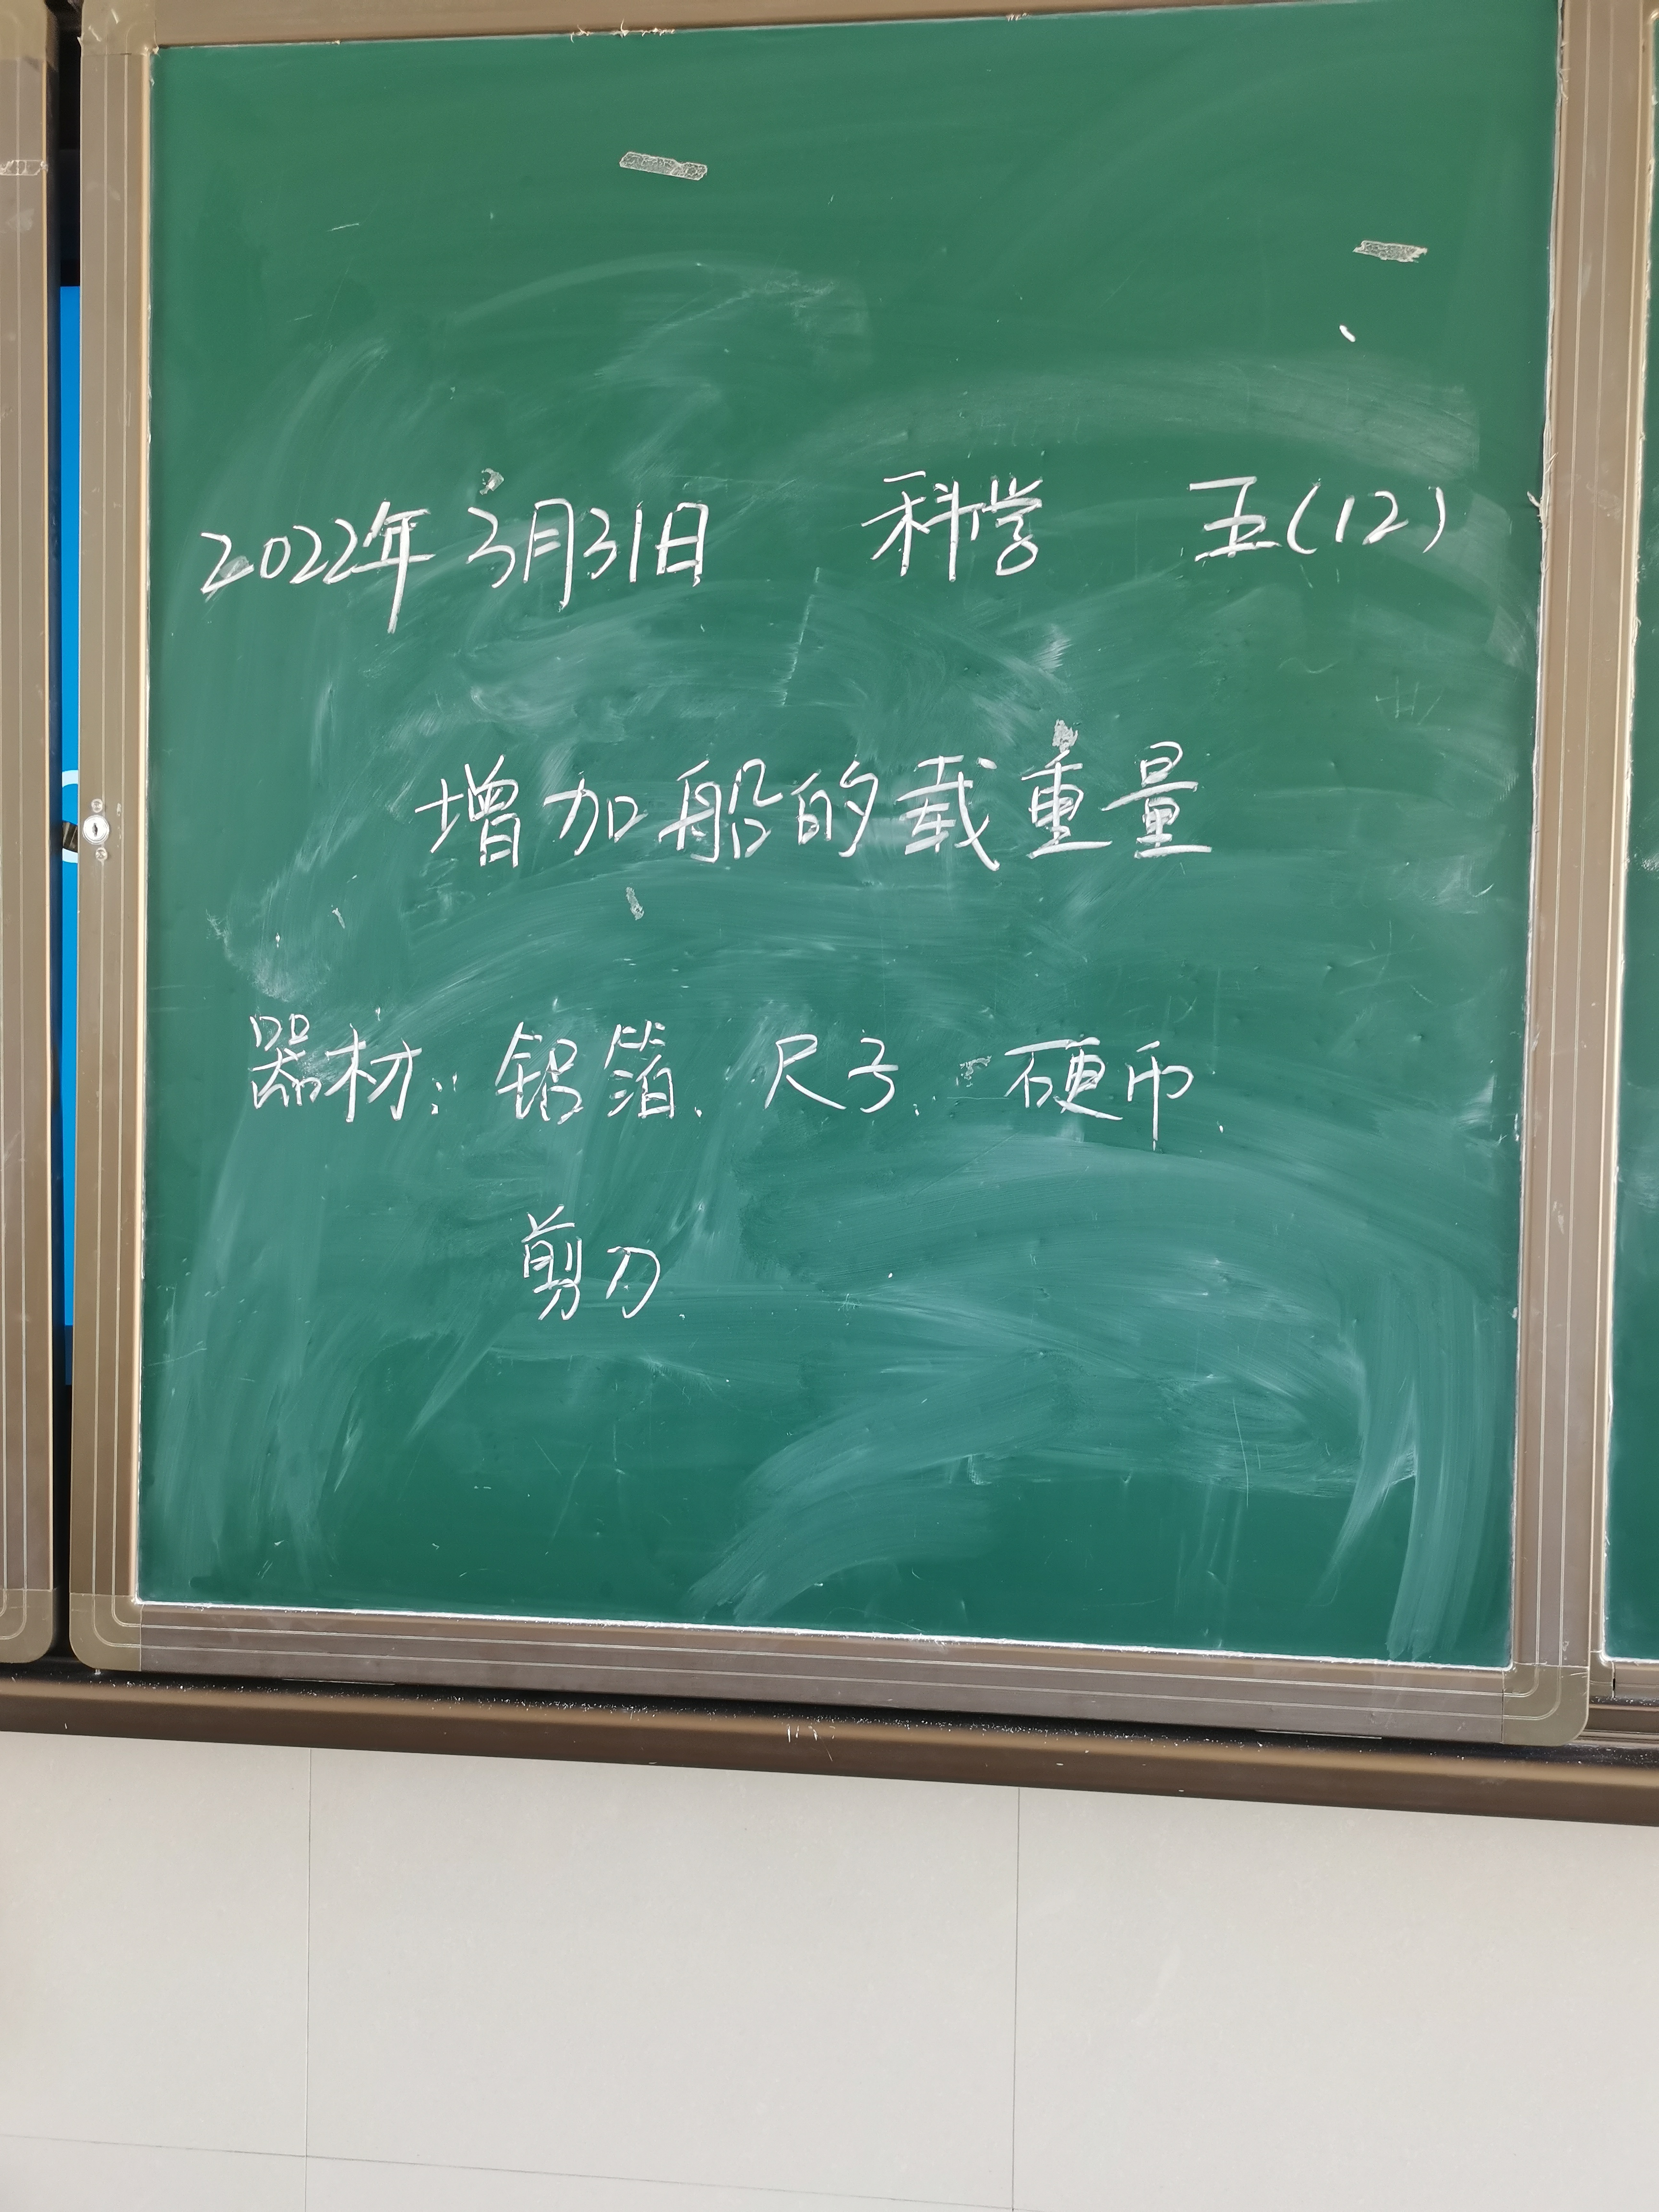 2022年3月31日 科学 五(12)
增加船的载重量
器材: 铝箔、尺子、硬币、
剪刀